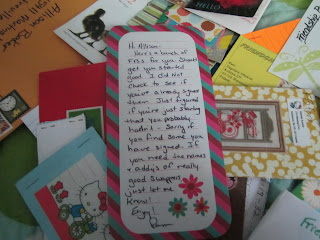 Hi Allison -
Here's a bunch of
FBs for you. Should
get you started
good. I did not
check to see if
you've already signed
them. Just figured
if you're just starting
that you probably
hadn't - Sorry if
you find some you
have signed. If
you need the names
& addy's of really
good swappers
just let me
know!
Enjoy!
Allison Baker
Friendship